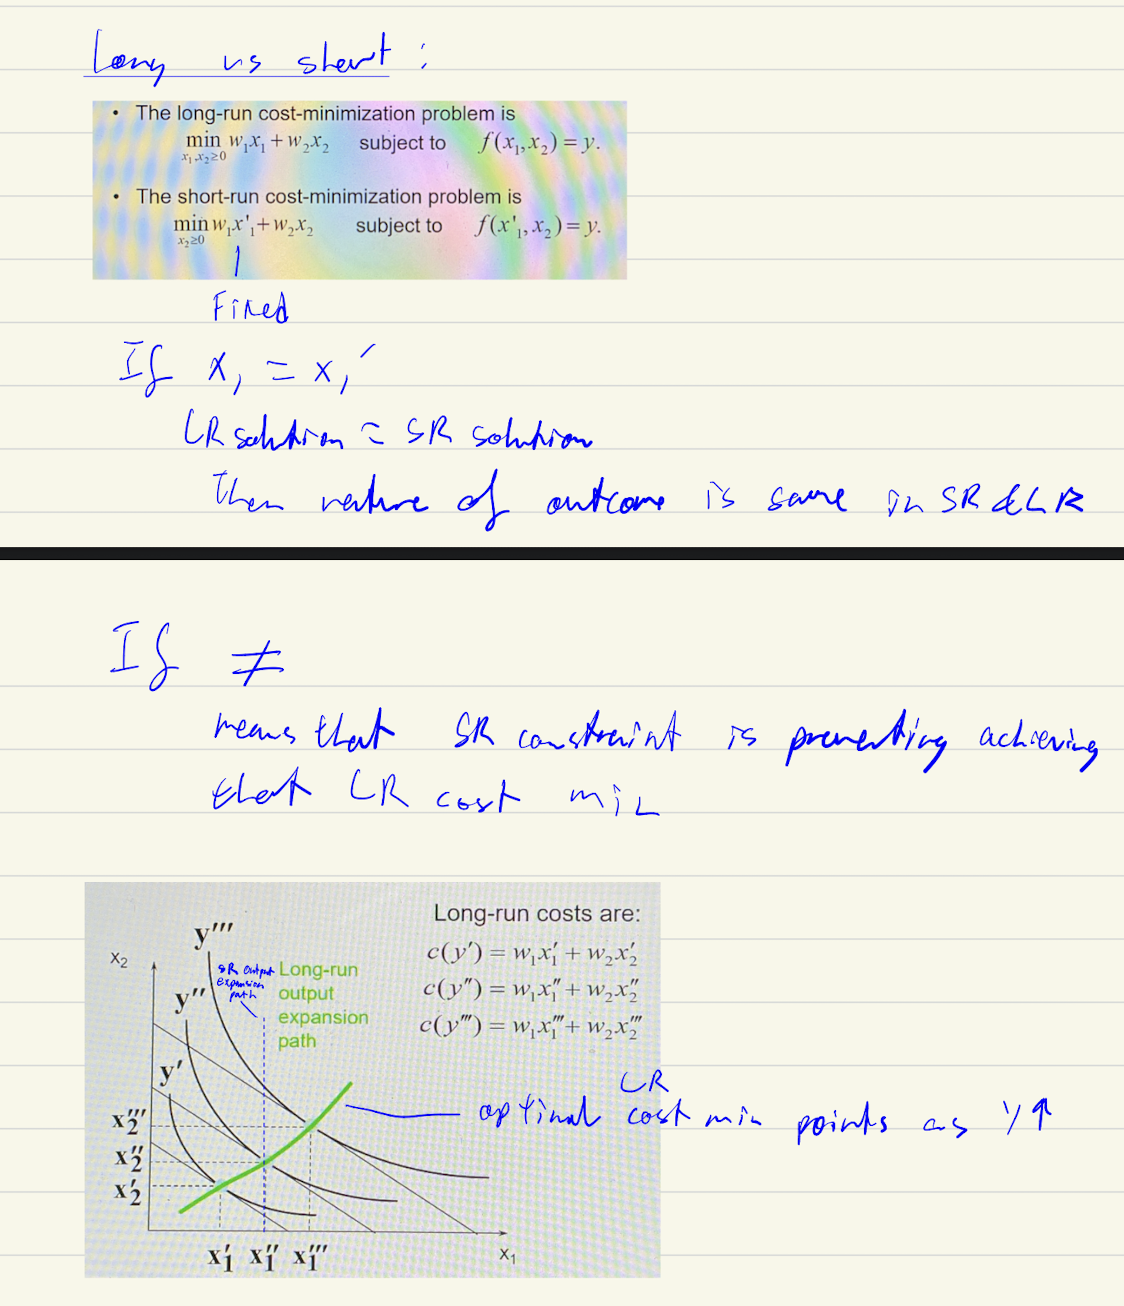 Long vs short :
• The long-run cost-minimization problem is
min w₁x₁ + w₂x₂ subject to f(x₁,x₂) = y.
x₁,x₂≥0
• The short-run cost-minimization problem is
min w₁x'₁ + w₂x₂ subject to f(x'₁,x₂) = y.
x₂≥0
Fixed
If x₁ = x₁′
LR solution = SR solution
Then nature of outcome is same in SR & LR
If ≠
means that SR constraint is preventing achieving
that LR cost min
Long-run costs are:
c(y′) = w₁x₁′ + w₂x₂′
c(y″) = w₁x₁″ + w₂x₂″
c(y‴) = w₁x₁‴ + w₂x₂‴
y‴
x₂
SR output
expansion
path
Long-run
output
expansion
path
y″
y′
LR
optimal cost min points as y↑
x₂‴
x₂″
x₂′
x₁′ x₁″ x₁‴
x₁